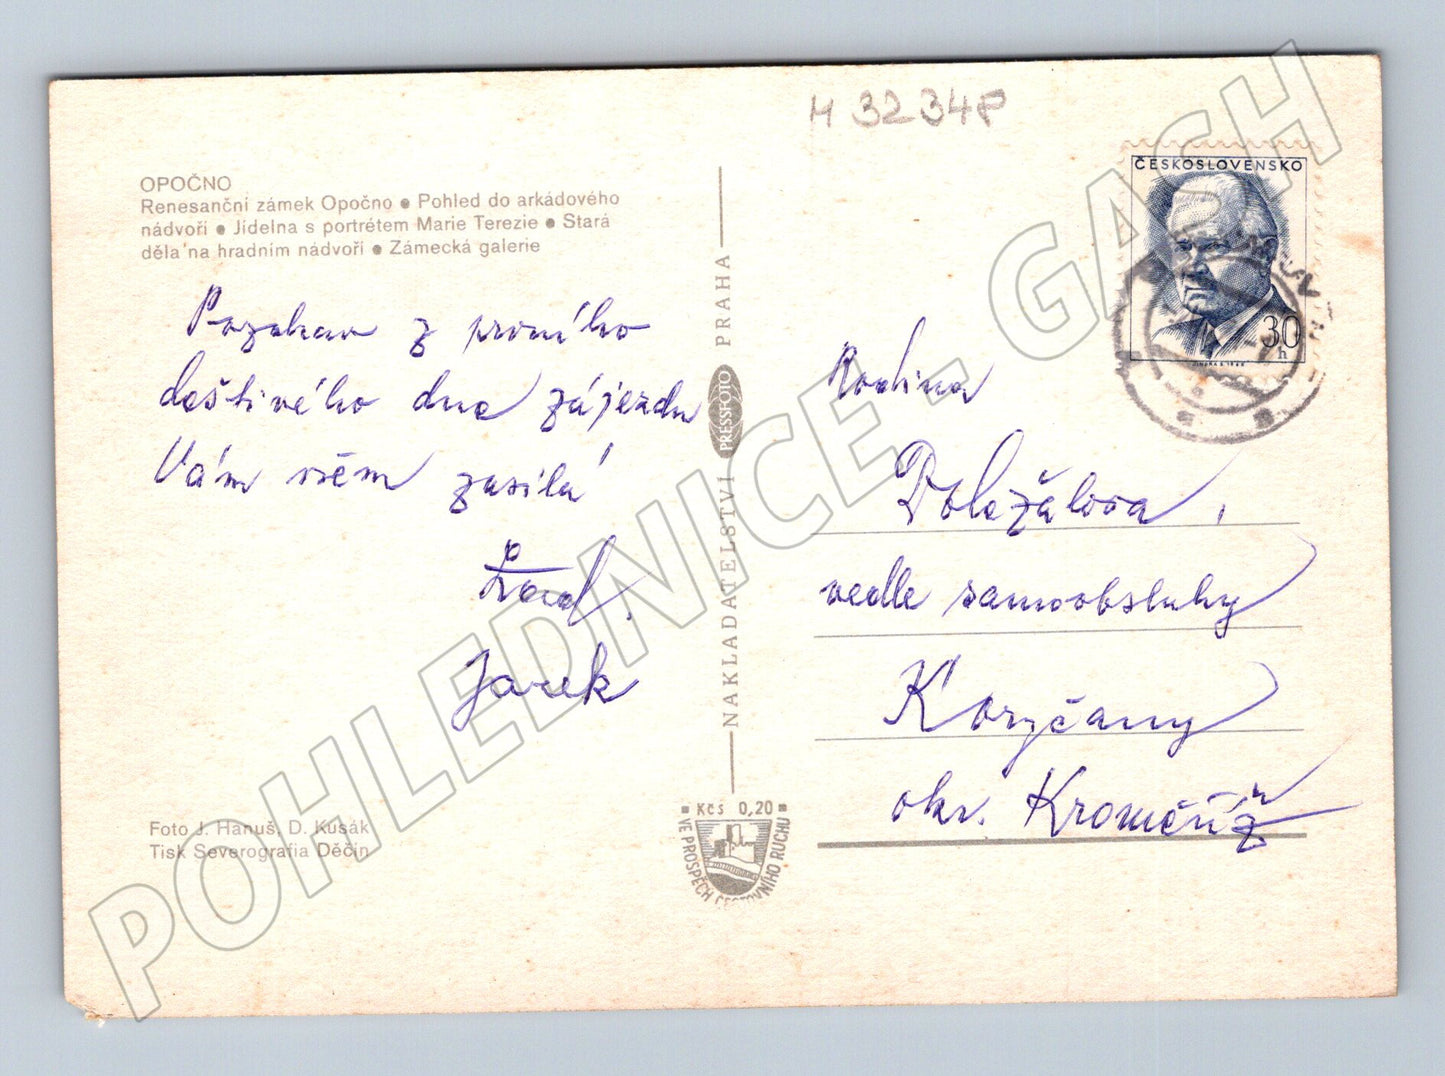 M 32348
OPOČNO
Renesanční zámek Opočno ● Pohled do arkádového
nádvoří ● Jídelna s portrétem Marie Terezie ● Stará
děla na hradním nádvoří ● Zámecká galerie
Pozdrav z prvního
deštivého dne zájezdu
Vám všem zasílá
Jarek
Foto J. Hanuš, D. Kusák
Tisk Severografia Děčín
NAKLADATELSTVÍ PRESSFOTO PRAHA
Kčs 0,20
VE PROSPĚCH CESTOVNÍHO RUCHU
ČESKOSLOVENSKO
30
h
Rodina
Doležalova,
vedle samoobsluhy
Koryčany
okr. Kroměříž
POHLEDNICE - GACH